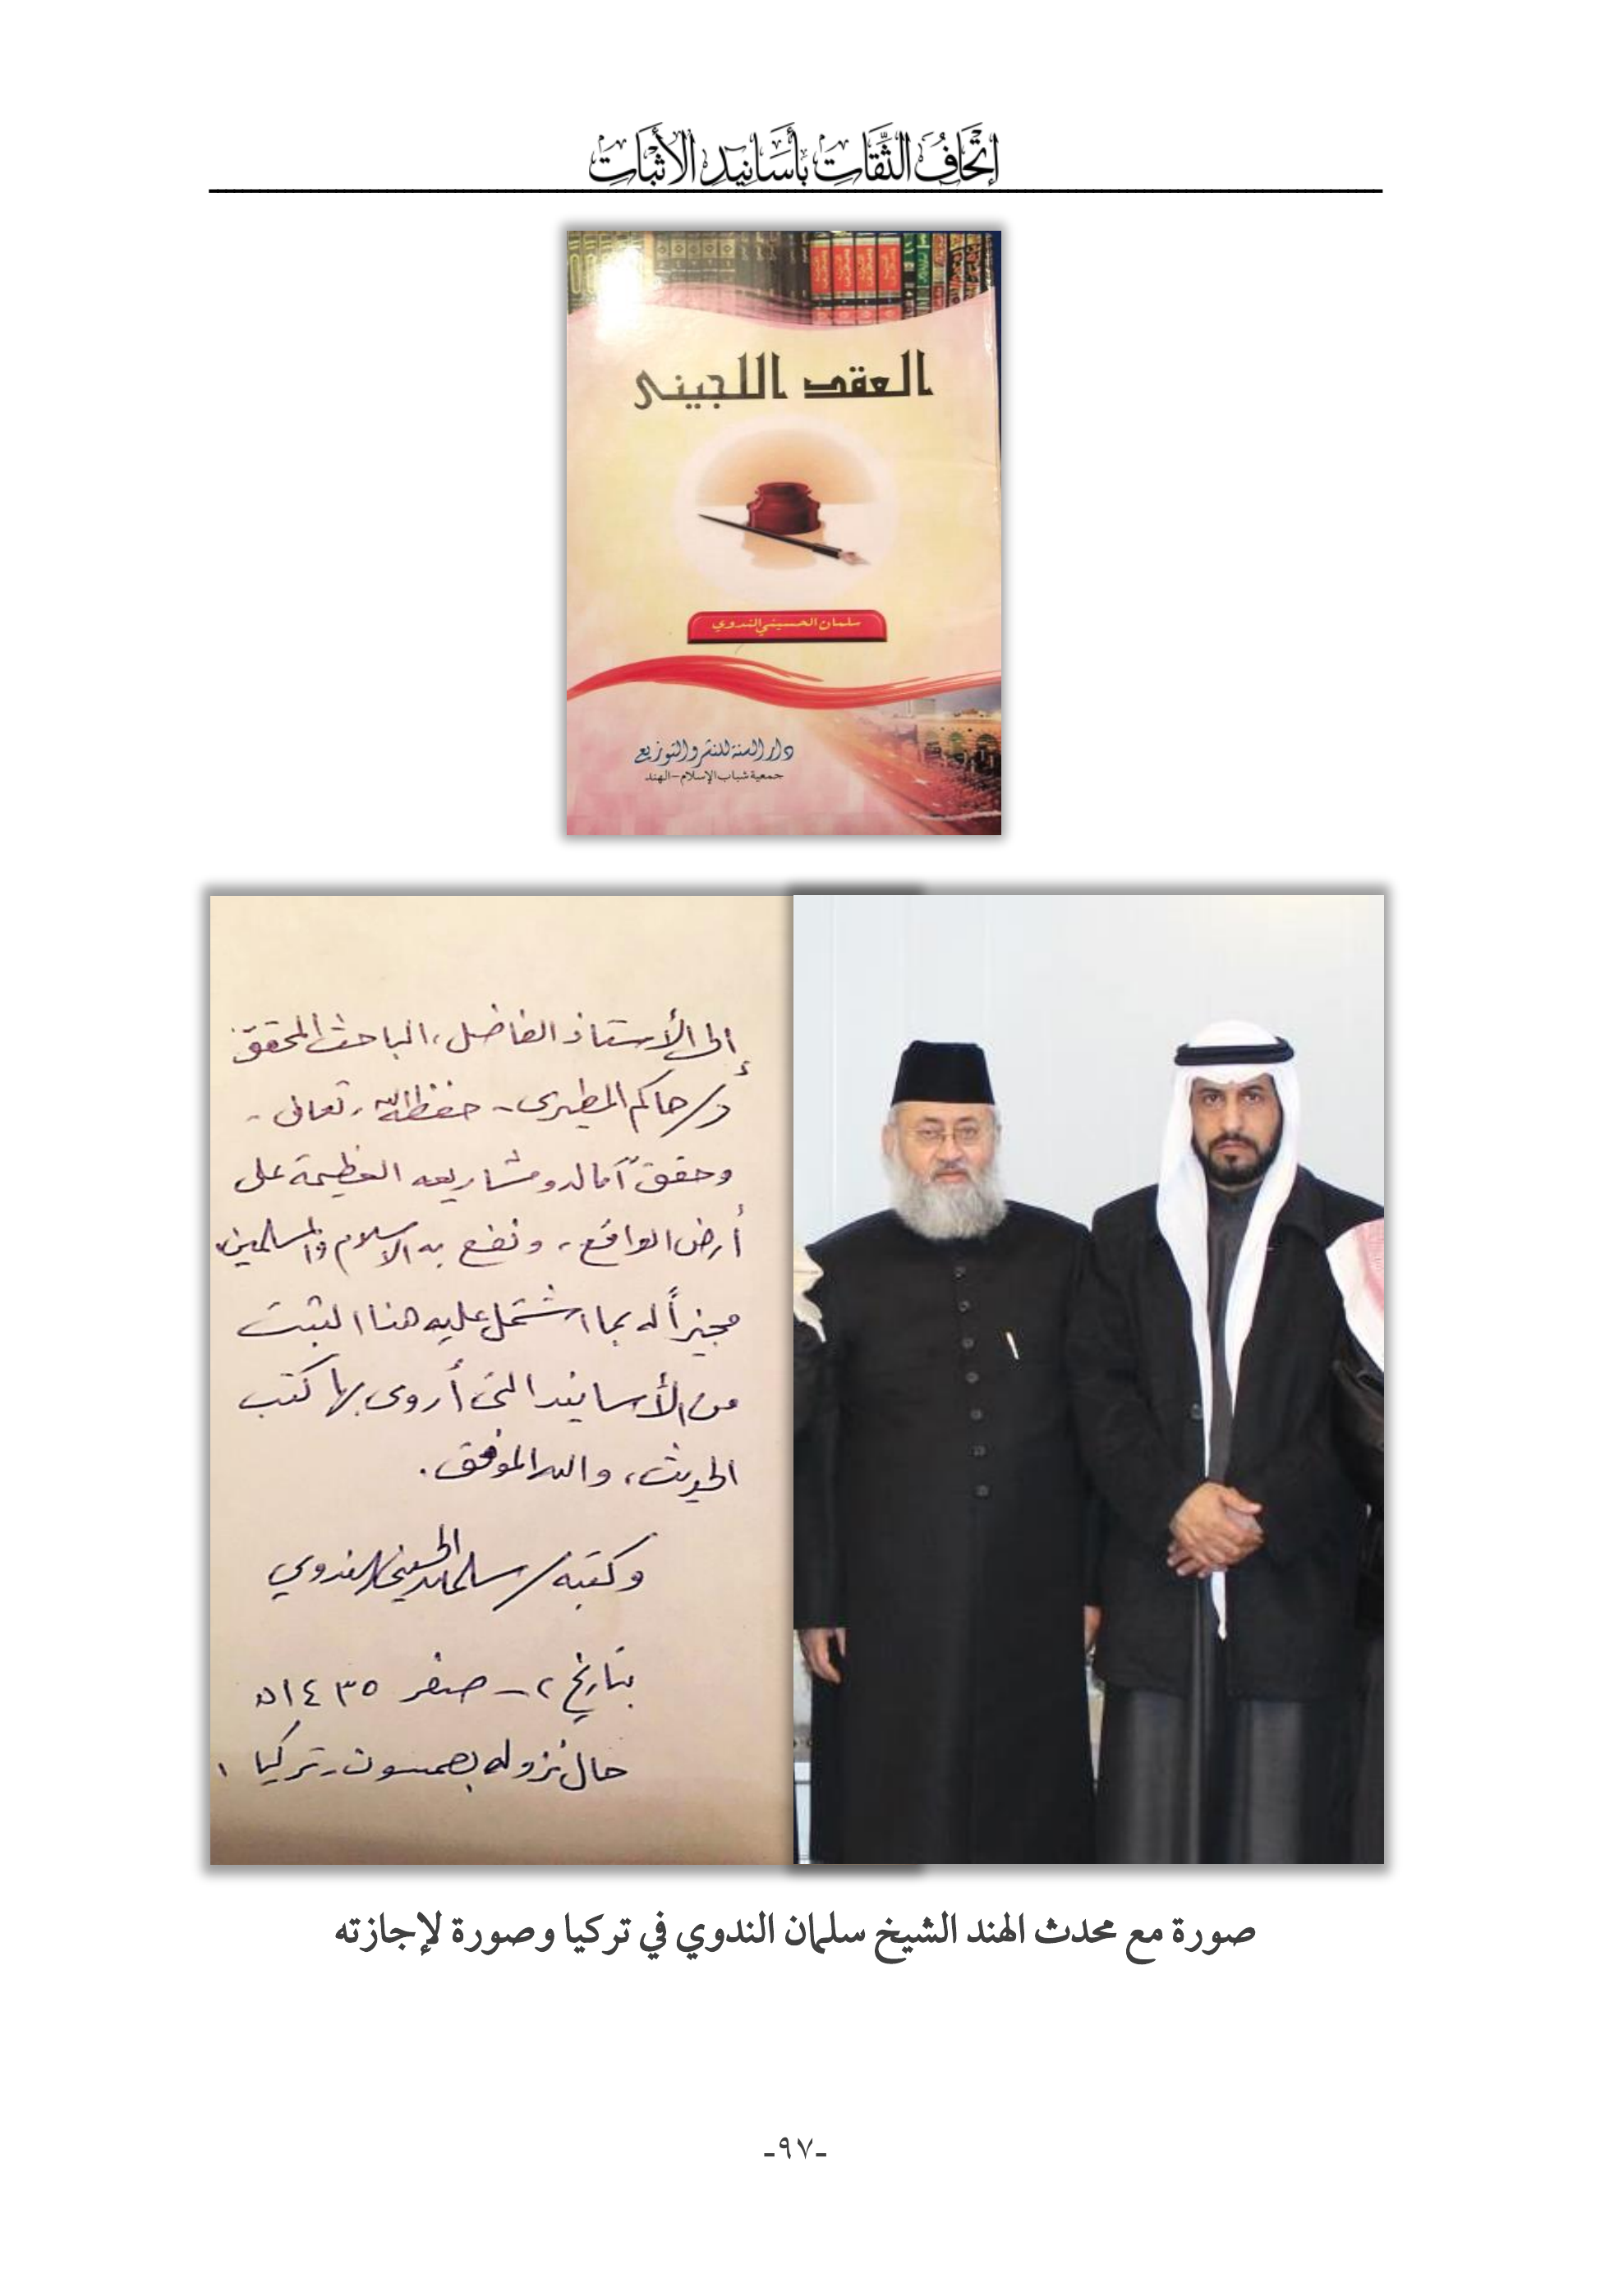 إتحاف الثقات بأسانيد الأثبات
العقد اللجيني
سلمان الحسيني الندوي
دار السنة للنشر والتوزيع
جمعية شباب الإسلام - الهند
إلى الأستاذ الفاضل، الباحث المحقق
د/ حاكم المطيري - حفظه الله تعالى -
وحقق آماله ومشاريعه العظيمة على
أرض الواقع، ونفع به الإسلام والمسلمين
مجيزاً له بما اشتمل عليه هذا الثبت
من الأسانيد التي أروي بها كتب
الحديث، والله الموفق.
وكتبه/ سلمان الحسيني الندوي
بتاريخ ٢ - صفر ١٤٣٥ھ
حال نزوله بصمسون - تركيا
صورة مع محدث الهند الشيخ سلمان الندوي في تركيا وصورة لإجازته
-٩٧-